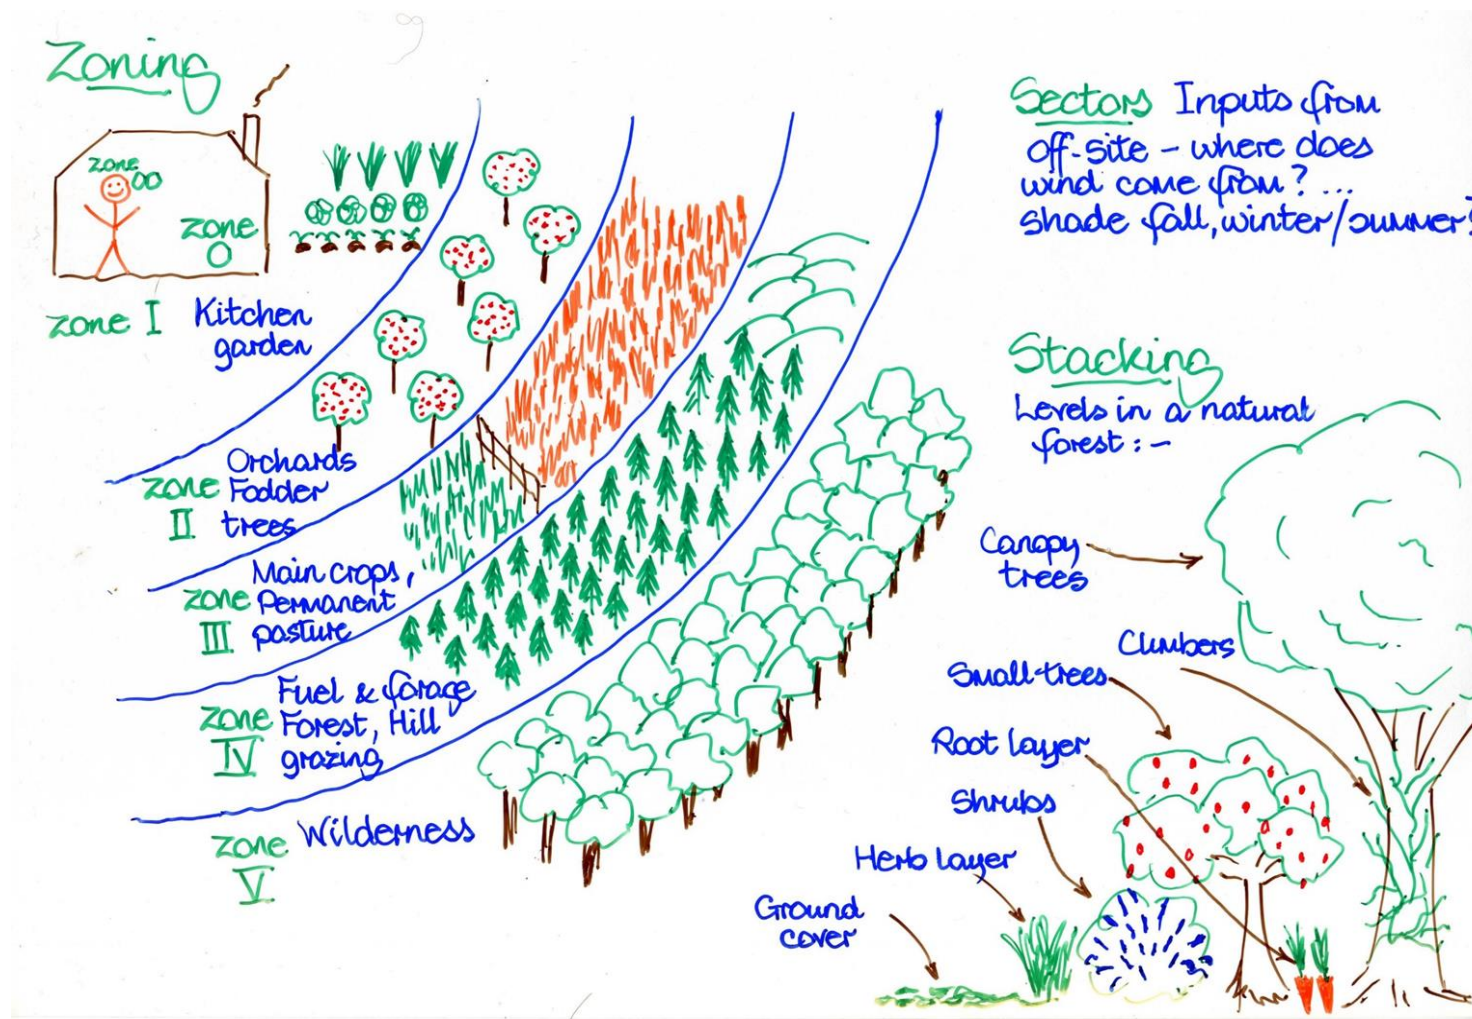 Zoning
zone
00
zone
0
zone I
Kitchen
garden
zone
II
Orchards
Fodder
trees
zone
III
Main crops,
Permanent
pasture
zone
IV
Fuel & forage
Forest, Hill
grazing
zone
V
Wilderness
Sectors Inputs from
off-site - where does
wind come from? ...
shade fall, winter/summer?
Stacking
Levels in a natural
forest :-
Canopy
trees
Climbers
Small trees
Root layer
Shrubs
Herb layer
Ground
cover